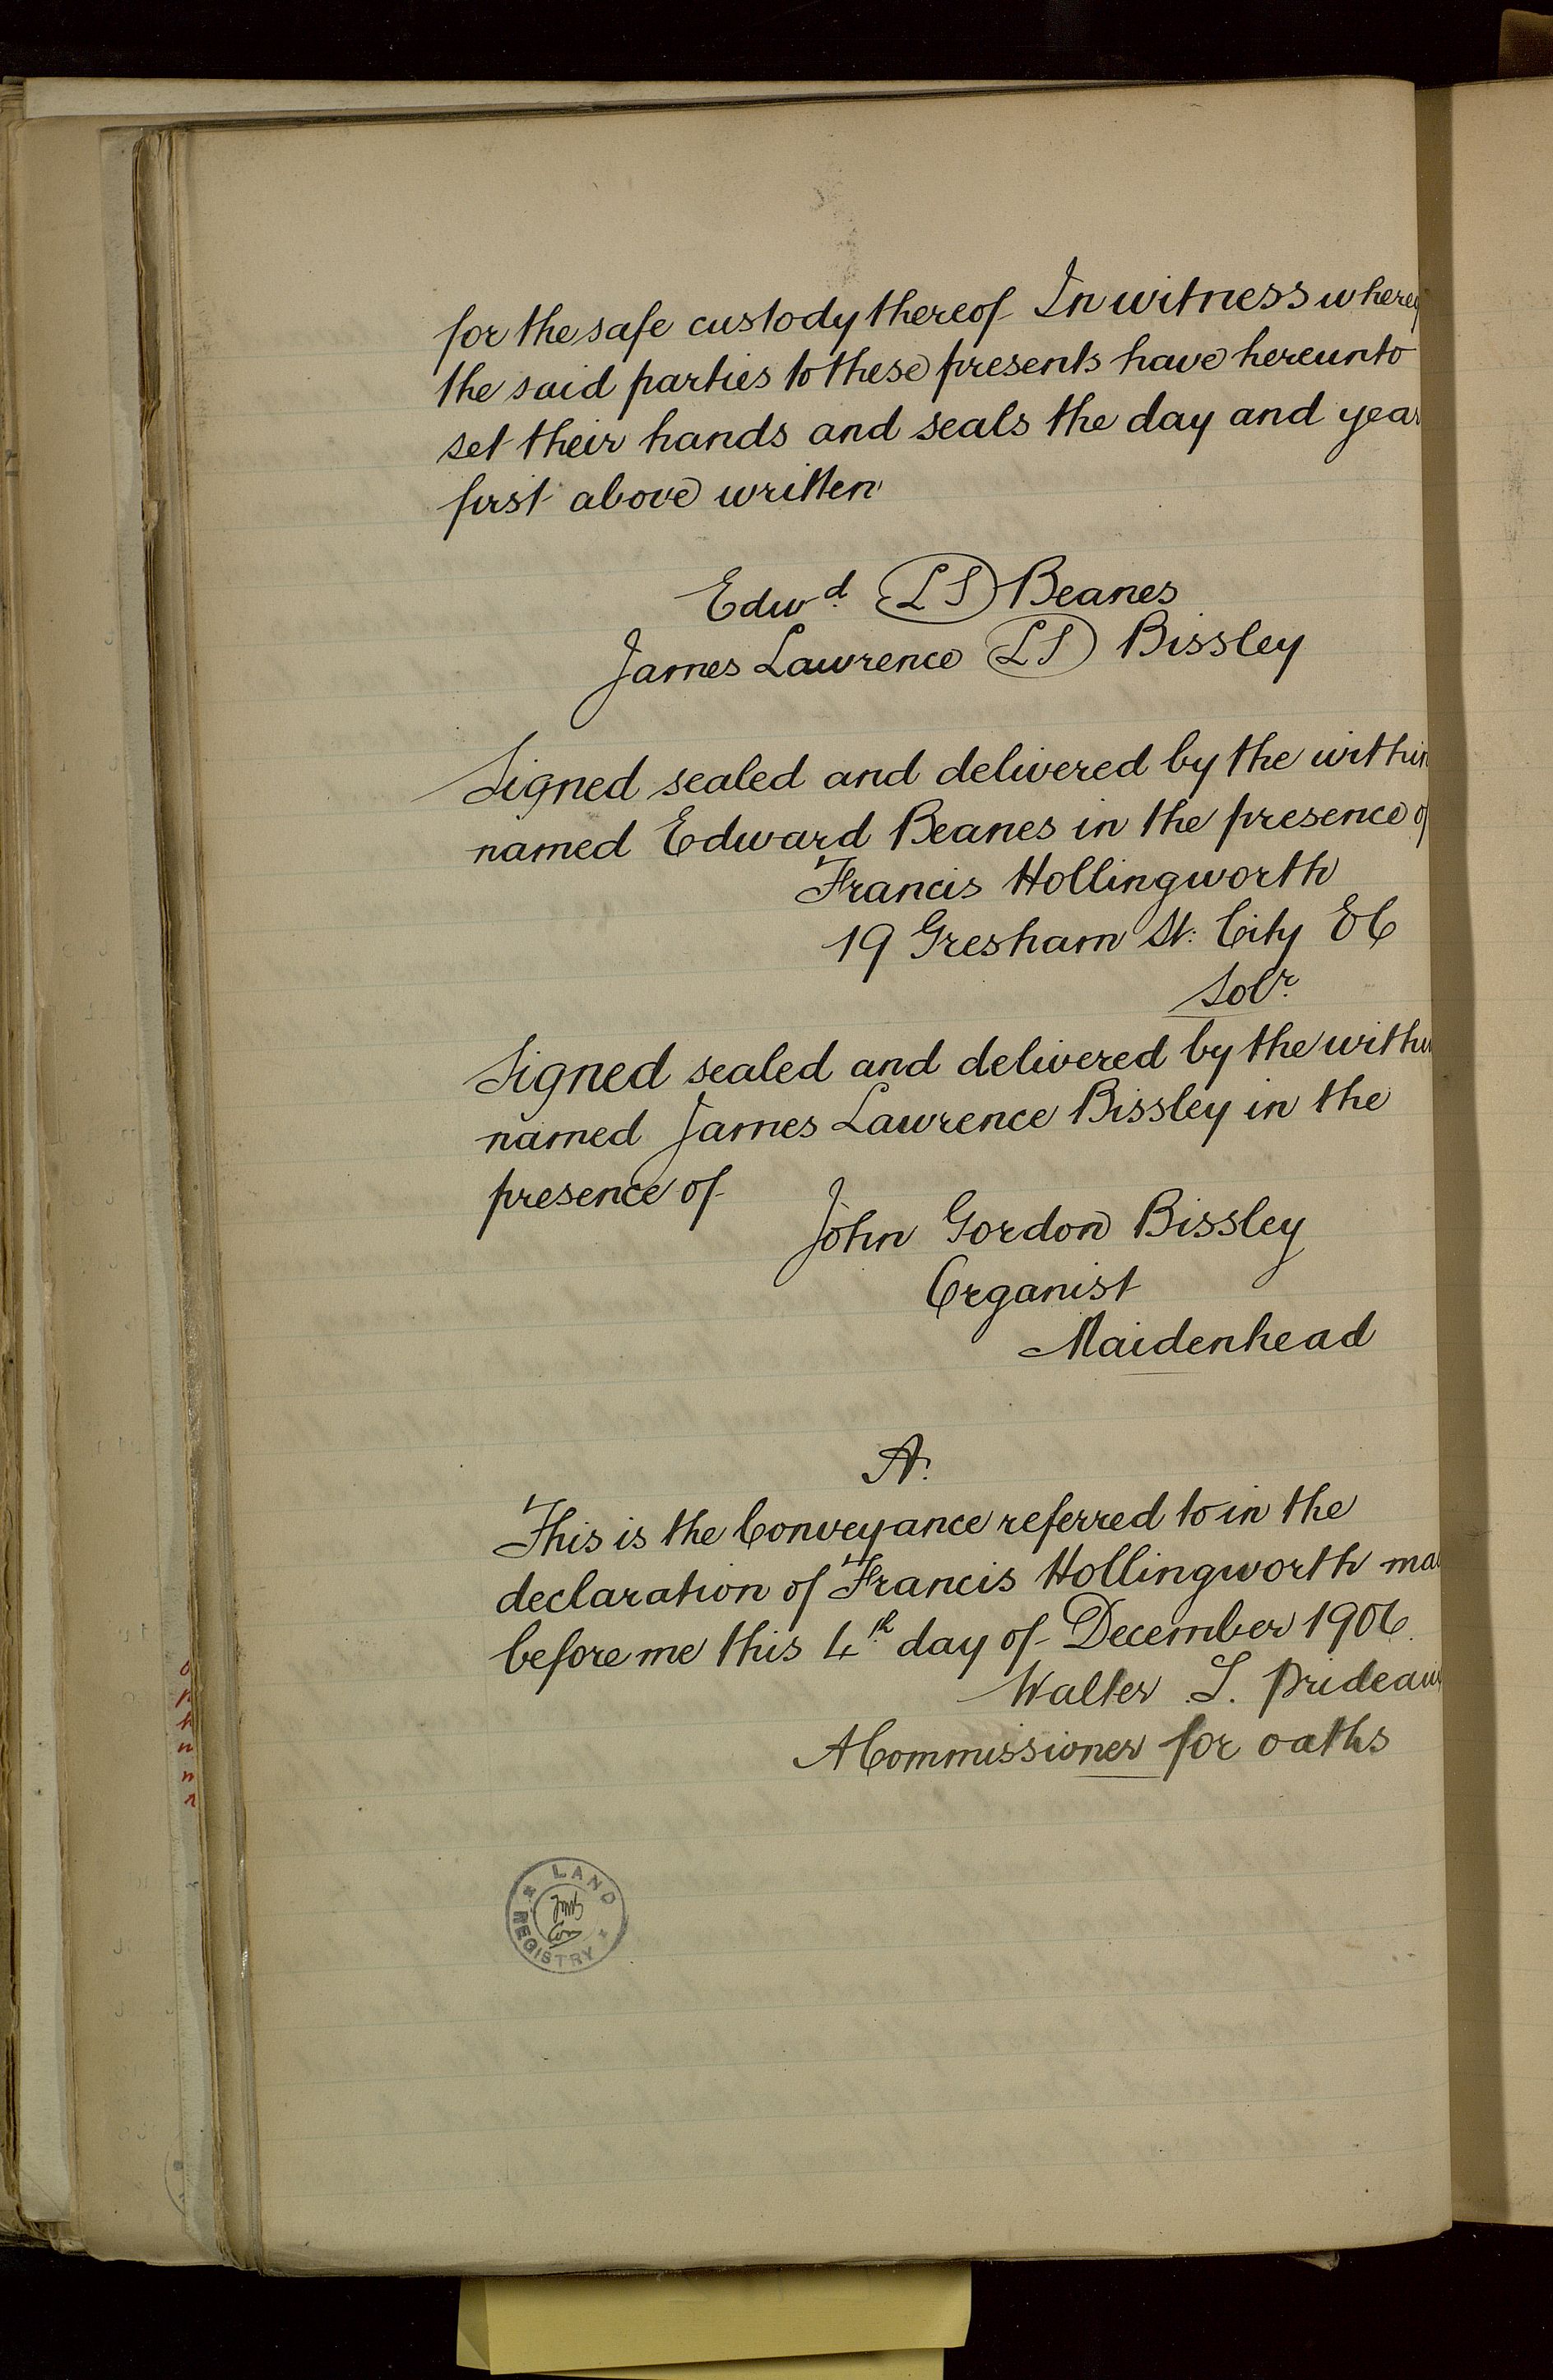 for the safe custody thereof In witness where
the said parties to these presents have hereunto
set their hands and seals the day and year
first above written
Edwd. LS Beanes
James Lawrence LS Bissley
Signed sealed and delivered by the within
named Edward Beanes in the presence of
Francis Hollingworth
19 Gresham St: City EC
Solr.
Signed sealed and delivered by the within
named James Lawrence Bissley in the
presence of
John Gordon Bissley
Organist
Maidenhead
A.
This is the Conveyance referred to in the
declaration of Francis Hollingworth ma
before me this 4th day of December 1906.
Walter S. Prideaux
A Commissioner for oaths
LAND
REGISTRY